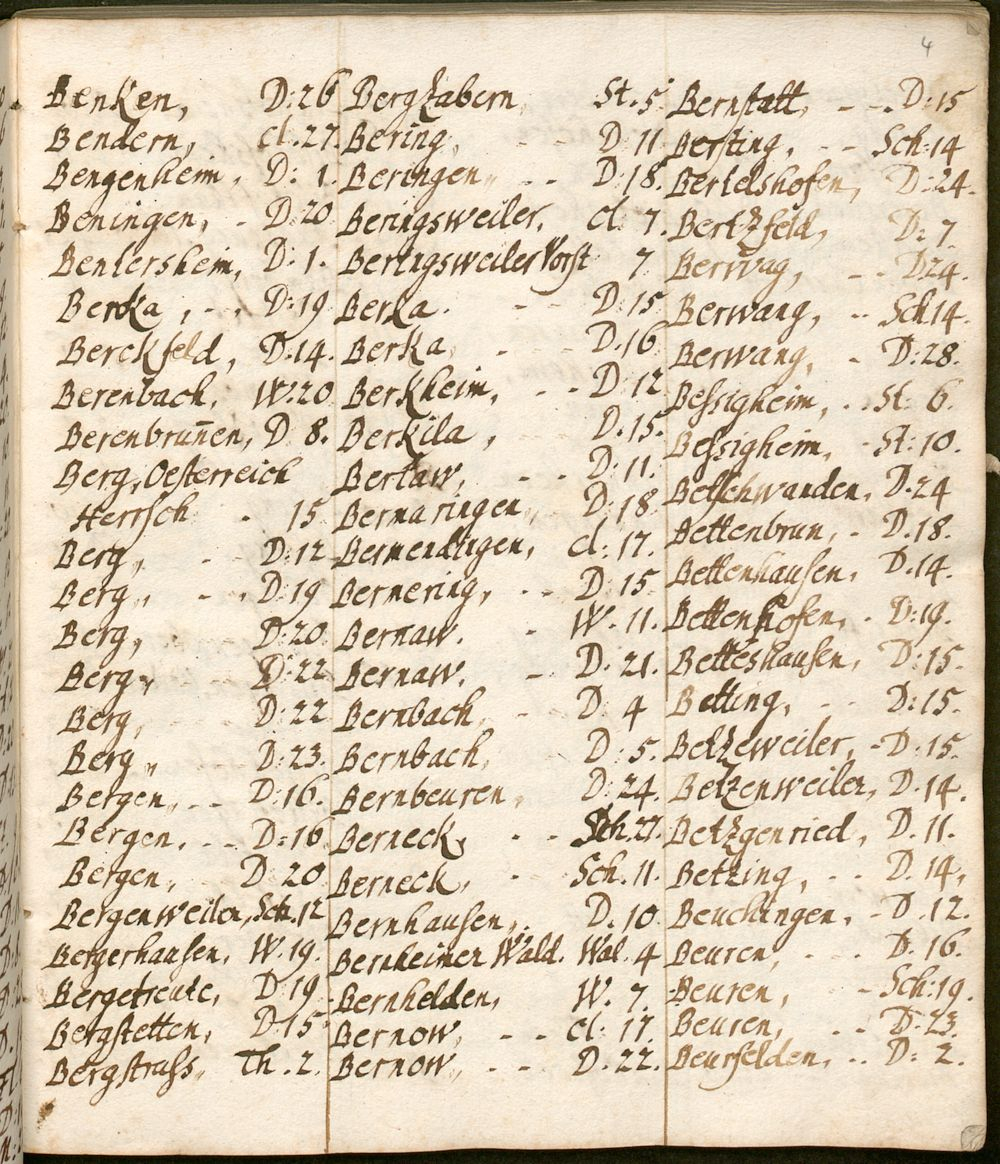 4
Benken, D: 26
Bendern, cl. 27.
Bengenheim, D: 1.
Beningen, - D: 20
Bentersheim, D: 1.
Berka, - . D: 19
Berckfeld, D. 14.
Berenbach, W. 20
Berenbrun̄en, D 8.
Berg, Oesterreich
Herrsch . 15
Berg, . - D: 12
Berg, - . D: 19
Berg, . D: 20
Berg, D: 22
Berg, D: 22
Berg, D: 23.
Bergen, . - D: 16.
Bergen, . - D: 16
Bergen, D: 20
Bergenweiler, Sch. 12
Bergerhausen, W. 19.
Bergetreute, D: 19
Bergstetten, D. 15
Bergstrass, Th. 2.
Bergzabern, St. 5
Bering, - - D: 11
Beringen, - - D: 18.
Beringsweiler, cl. 7.
Beringsweiler Vorst 7
Berka. - - D: 15
Berka, . - D. 16
Berkheim, . - D: 12
Berkila, . D. 15.
Berlaw, - - D: 11.
Bermaringen, D: 18
Bermendingen, cl. 17.
Bernering, - - D: 15
Bernaw. - W. 11.
Bernaw. - D. 21.
Bernbach, - D: 4
Bernbach, D: 5.
Bernbeuren, D: 24.
Berneck, . - Sch. 27.
Berneck, . Sch. 11.
Bernhausen, . D. 10
Bernheimer Wald. Wal. 4
Bernhelden, W. 7.
Bernow, - - cl. 17.
Bernow, - - D. 22.
Bernstatt, - - D: 15
Bersting, - - Sch: 14
Bertelshofen, D: 24.
Bertzfeld, D: 7
Berwag, - - D 24.
Berwang, . - Sch 14.
Berwang, - D: 28.
Bessigheim, . . St: 6.
Bessigheim, - St: 10.
Betschwanden, D. 24
Bettenbrun, - D. 18.
Bettenhausen, D. 14.
Bettenhofen, . D: 19.
Betteshausen, D: 15.
Betting, - - D: 15.
Betzeweiler, - D. 15.
Betzenweiler, D. 14.
Betzgenried, D. 11.
Betzing, - - D. 14,
Beuchingen, - D. 12.
Beuren, - . - D. 16.
Beuren, - Sch: 19.
Beuren, . - D: 23.
Beurfelden, . . D: 2.